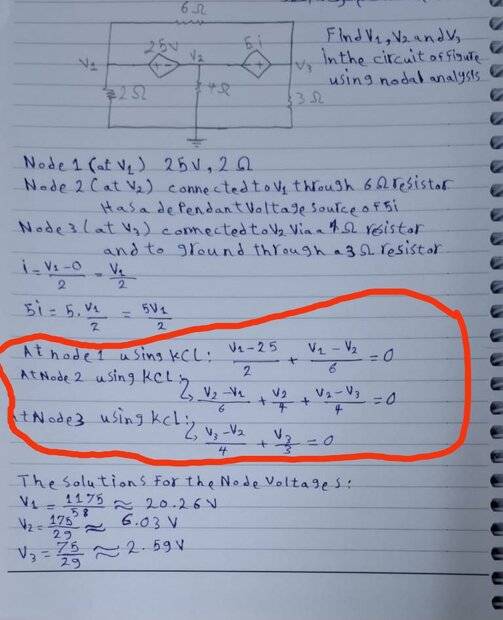 6Ω
25V
5i
V1
V2
V3
+ -
- +
2Ω
4Ω
3Ω
Find V1, V2 and V3
in the circuit of figure
using nodal analysis
Node 1 (at V1) 25V, 2Ω
Node 2 (at V2) connected to V1 through 6Ω resistor
Has a dependant Voltage source of 5i
Node 3 (at V3) connected to V2 via a 4Ω resistor
and to ground through a 3Ω resistor
i = (V1-0)/2 = V1/2
5i = 5. V1/2 = 5V1/2
At node 1 using KCL: (V1-25)/2 + (V1-V2)/6 = 0
At Node 2 using KCL:
(V2-V1)/6 + V2/4 + (V2-V3)/4 = 0
At Node 3 using KCL:
(V3-V2)/4 + V3/3 = 0
The Solutions For the Node Voltages:
V1 = 1175/58 ≈ 20.26V
V2 = 175/29 ≈ 6.03 V
V3 = 75/29 ≈ 2.59V